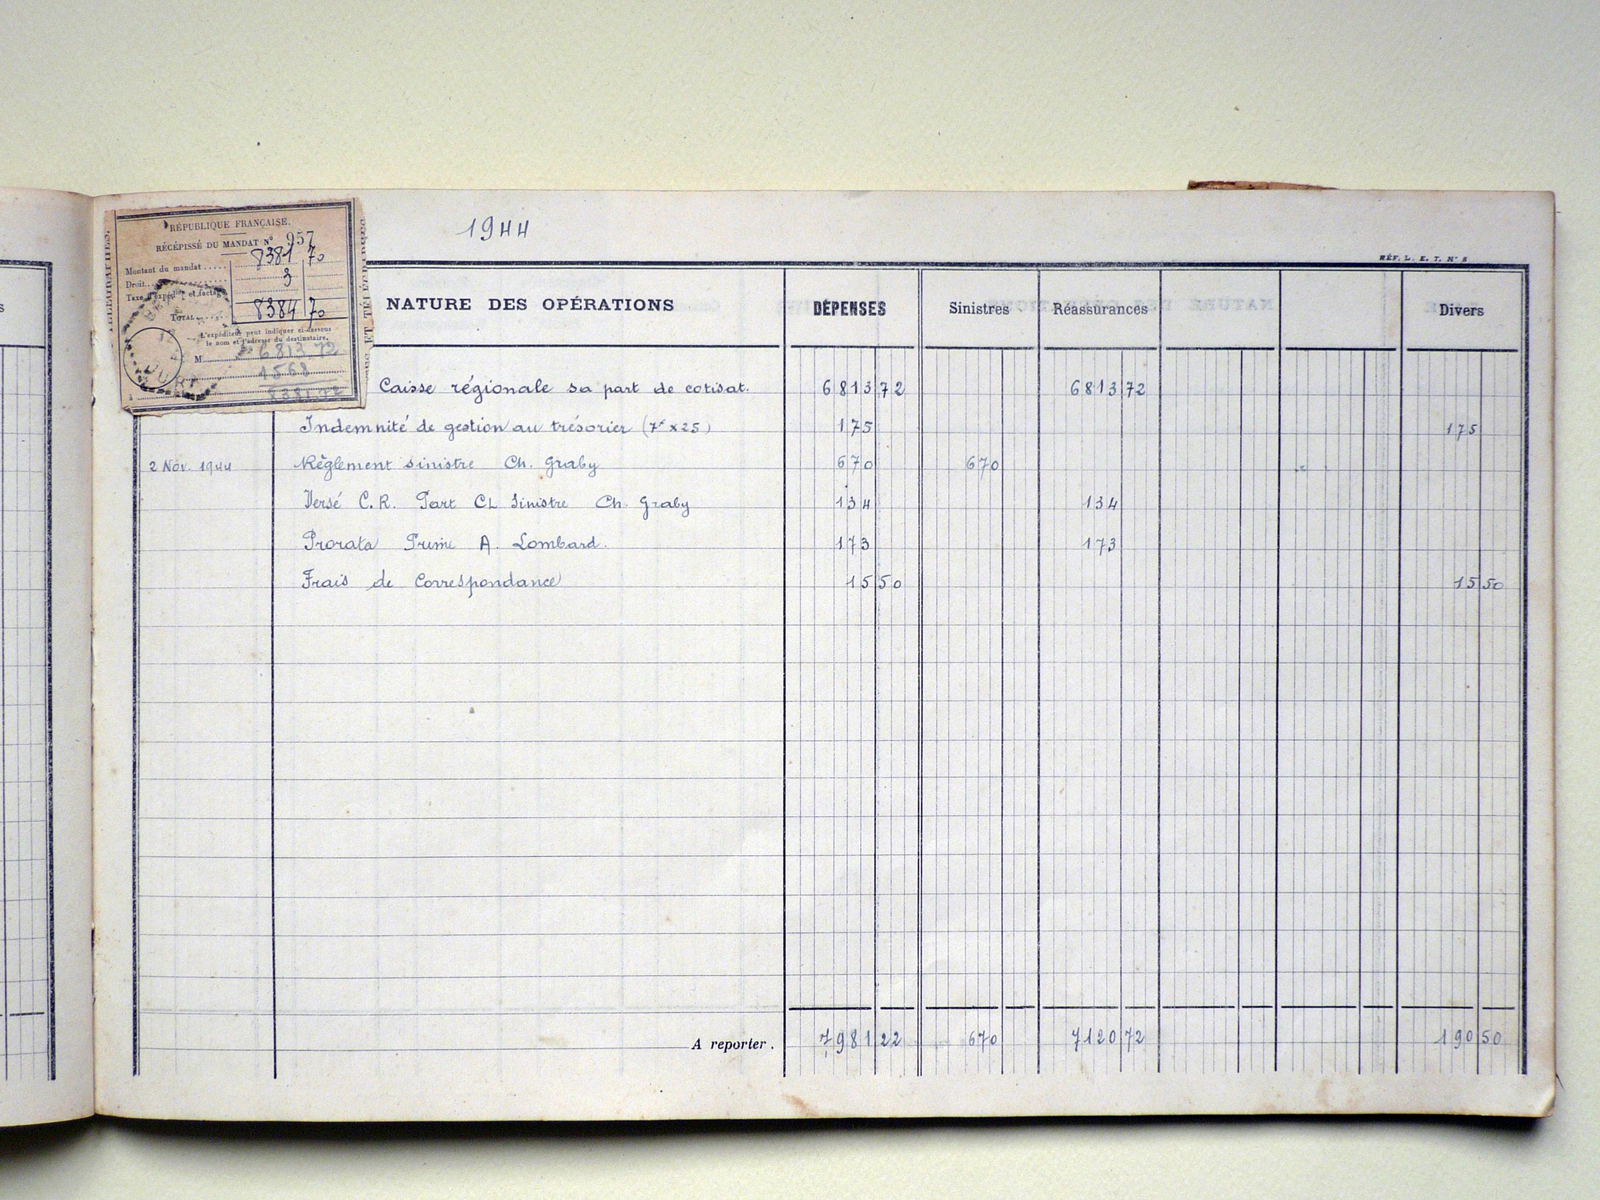 1944
RÉF. L. E. T. N° 8
RÉPUBLIQUE FRANÇAISE.
RÉCÉPISSÉ DU MANDAT N° 957
Montant du mandat ..... 8381 70
Droit ..... 3
Taxe d'expéd
TOTAL ..... 8384 70
L'expéditeur peut indiquer ci-dessous
le nom et l'adresse du destinataire.
M 6813 72
1568
NATURE DES OPÉRATIONS DÉPENSES Sinistres Réassurances Divers
Caisse régionale sa part de cotisat. 6813 72 6813 72
Indemnité de gestion au trésorier (7 x 25) 175 175
2 Nov. 1944 Règlement sinistre Ch. Graby 670 670
Versé C.R. Part CL Sinistre Ch. Graby 134 134
Prorata Prime A. Lombard. 173 173
Frais de Correspondance 15 50 15 50
A reporter. 7981 22 670 7120 72 190 50